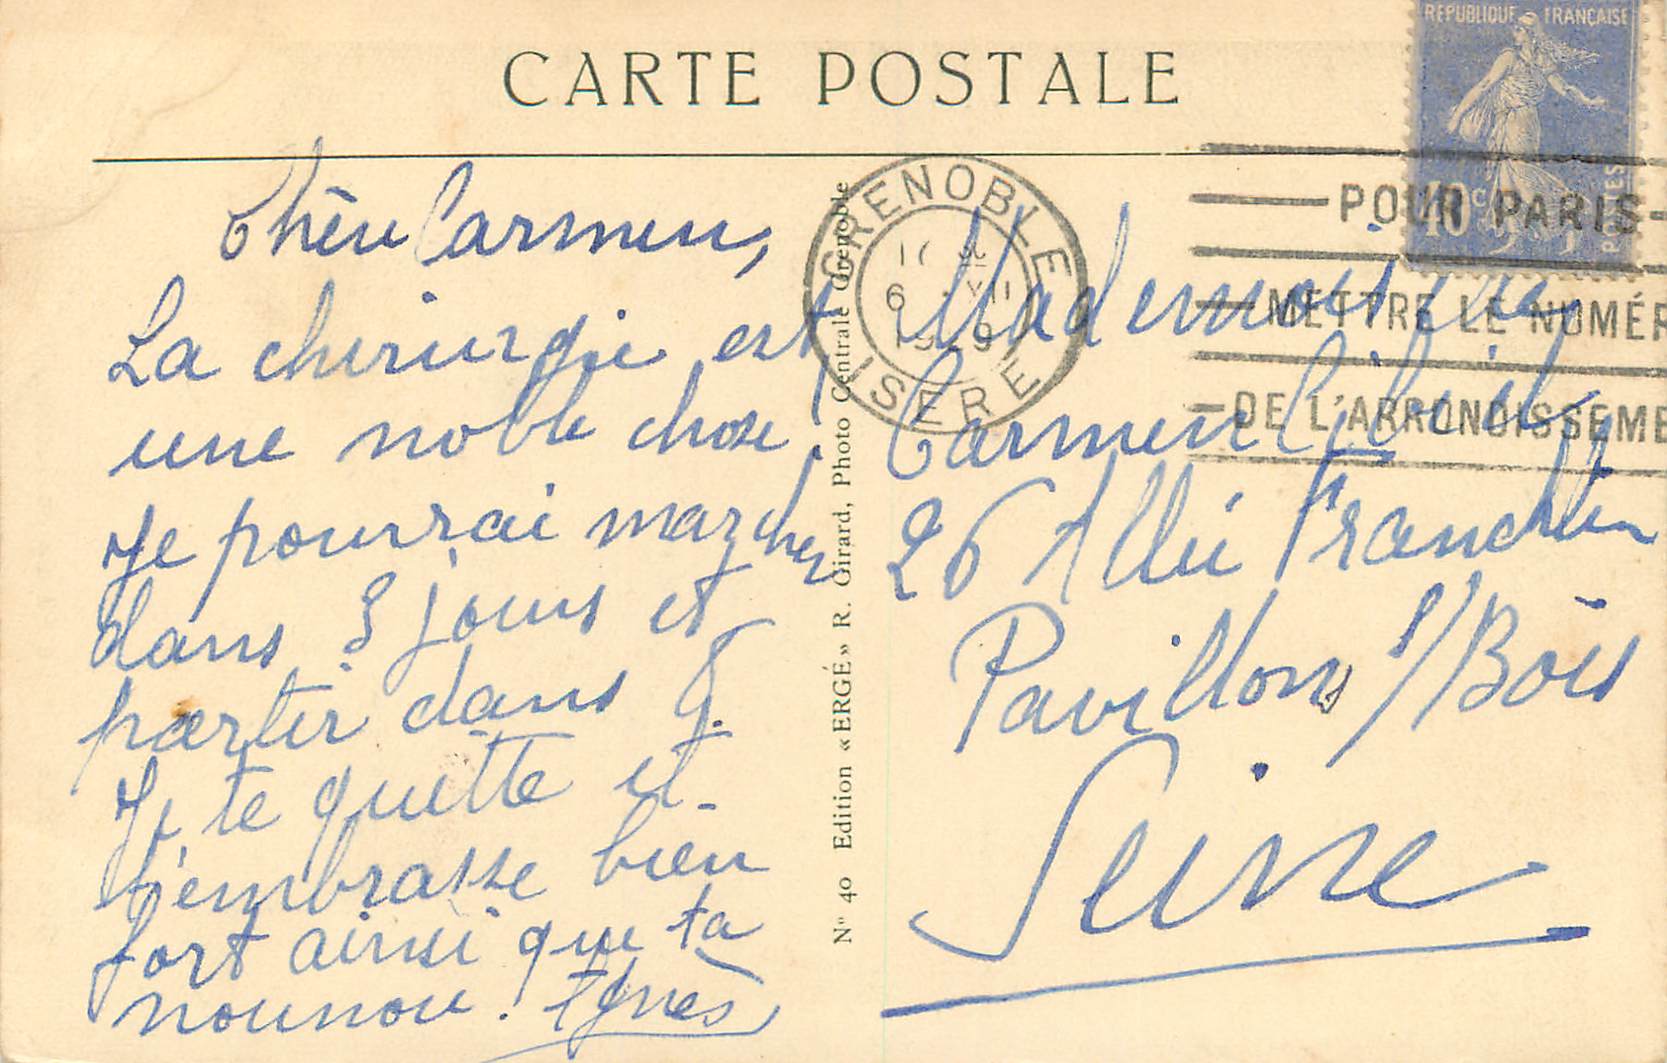 CARTE POSTALE
RÉPUBLIQUE FRANÇAISE
40c
POSTES
GRENOBLE
6 XII
1929
ISERE
POUR PARIS-
METTRE LE NUMÉR
DE L'ARRONDISSEME
Chère Carmen,
La chirurgie est
une noble chose!
Je pourrai marcher
dans 3 jours et
partir dans 8.
Je te quitte et
t'embrasse bien
fort ainsi que ta
nounou. Agnès
Nº 40 Edition «ERGÉ» R. Girard, Photo Centrale Grenoble
Mademoiselle
Carmen
26 Allée Franchlin
Pavillons s/Bois
Seine